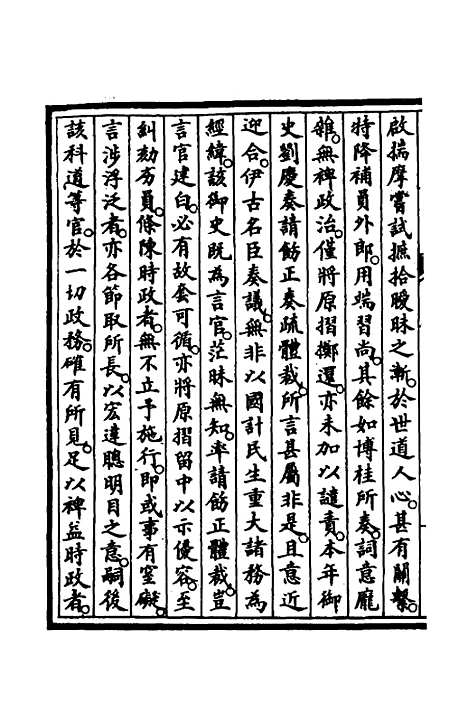 啟揣摩嘗試摭拾曖昧之漸。於世道人心。甚有關繫。
特降補員外郎。用端習尚。其餘如博桂所奏。詞意龐
雜。無裨政治。僅將原摺擲還。亦未加以譴責。本年御
史劉慶奏請飭正奏疏體裁。所言甚屬非是。且意近
迎合。伊古名臣奏議。無非以國計民生重大諸務為
經緯。該御史既為言官。茫昧無知。率請飭正體裁。豈
言官建白。必有故套可循。亦將原摺留中。以示優容。至
糾劾夯員。條陳時政者。無不立予施行。即或事有窒礙。
言涉浮泛者。亦各節取所長。以宏達聰明目之意。嗣後
該科道等官。於一切政務。確有所見。足以裨益時政者。